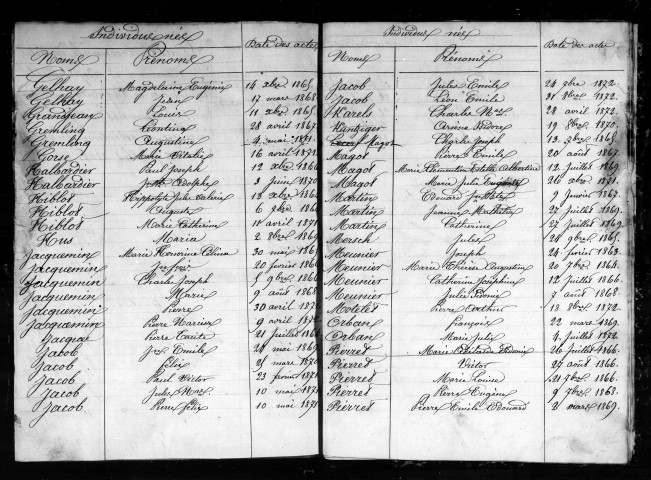 Individus nés
Date des actes
Noms Prénoms
Gelhay Magdelaine Eugénie 14 xbre 1865
Gelhay Jean 17 mars 1868
Grandjean Louis 11 xbre 1865
Gremling Léontine 28 avril 1867
Gremling Augustine 4 mai 1871
Gorse Marie Vitalie 16 avril 1871
Halbardier Paul Joseph 12 xbre 1866
Halbardier Jh Adolphe 3 juin 1870
Hiblot Hippolyte Jules Valérie 18 xbre
Hiblot Auguste 6 7bre
Hiblot Marie Catherine 11 avril 1871
Hus Maria 2 8bre 1869
Jacquemin Marie Honorine Célina 30 mai
Jacquemin 20 février 1866
Jacquemin Charles Joseph 5 9bre 1866
Jacquemin Marie 9 août 1868
Jacquemin Pierre 30 avril
Jacquemin Pierre Narcisse 9 avril
Jacque Pierre 21 juillet
Jacob Jn Emile 24 mai 1869
Jacob félix 21 mars 1870
Jacob Paul Victor 23 février 1871
Jacob Jules Nas 10 mai 1871
Jacob Pierre félix 10 mai 1871
Individus nés
Date des actes
Noms Prénoms
Jacob Jules Emile 24 7bre 1872
Jacob Léon Emile 31 8bre 1872
Karels Charles Nas 28 avril 1872
Huntziger Arsène Isidore 19 8bre 1870
Magot Charles Joseph 13 7bre 1865
Magot Pierre Emile 20 août 1867
Magot Marie Clémentine Estelle Albertine 12 juillet 1869
Magot Marie Julie Eugénie 26 xbre 1871
Martin Edouard 9 janvier 1867
Martin Jeanne Mathilde 27 juillet 1869
Martin Catherine 27 juillet 1869
Mersch Jules 24 9bre 1865
Meunier Joseph 24 février 1863
Meunier Marie Thérèse Augustine 20 7bre 1864
Meunier Catherine Joséphine 12 juillet 1866
Meunier Jules Pierre 7 août 1868
Motelet Pierre Arthur 13 8bre 1872
Orban françois 22 mars 1869
Orban Marie Julie 4 juillet 1872
Pierret Marie 26 juillet 1866
Pierret Victor 27 août 1866
Pierret Marie Louise 21 7bre 1866
Pierret Pierre Eugène 9 7bre 1868
Pierret Pierre Emile Edouard 2 mars 1869